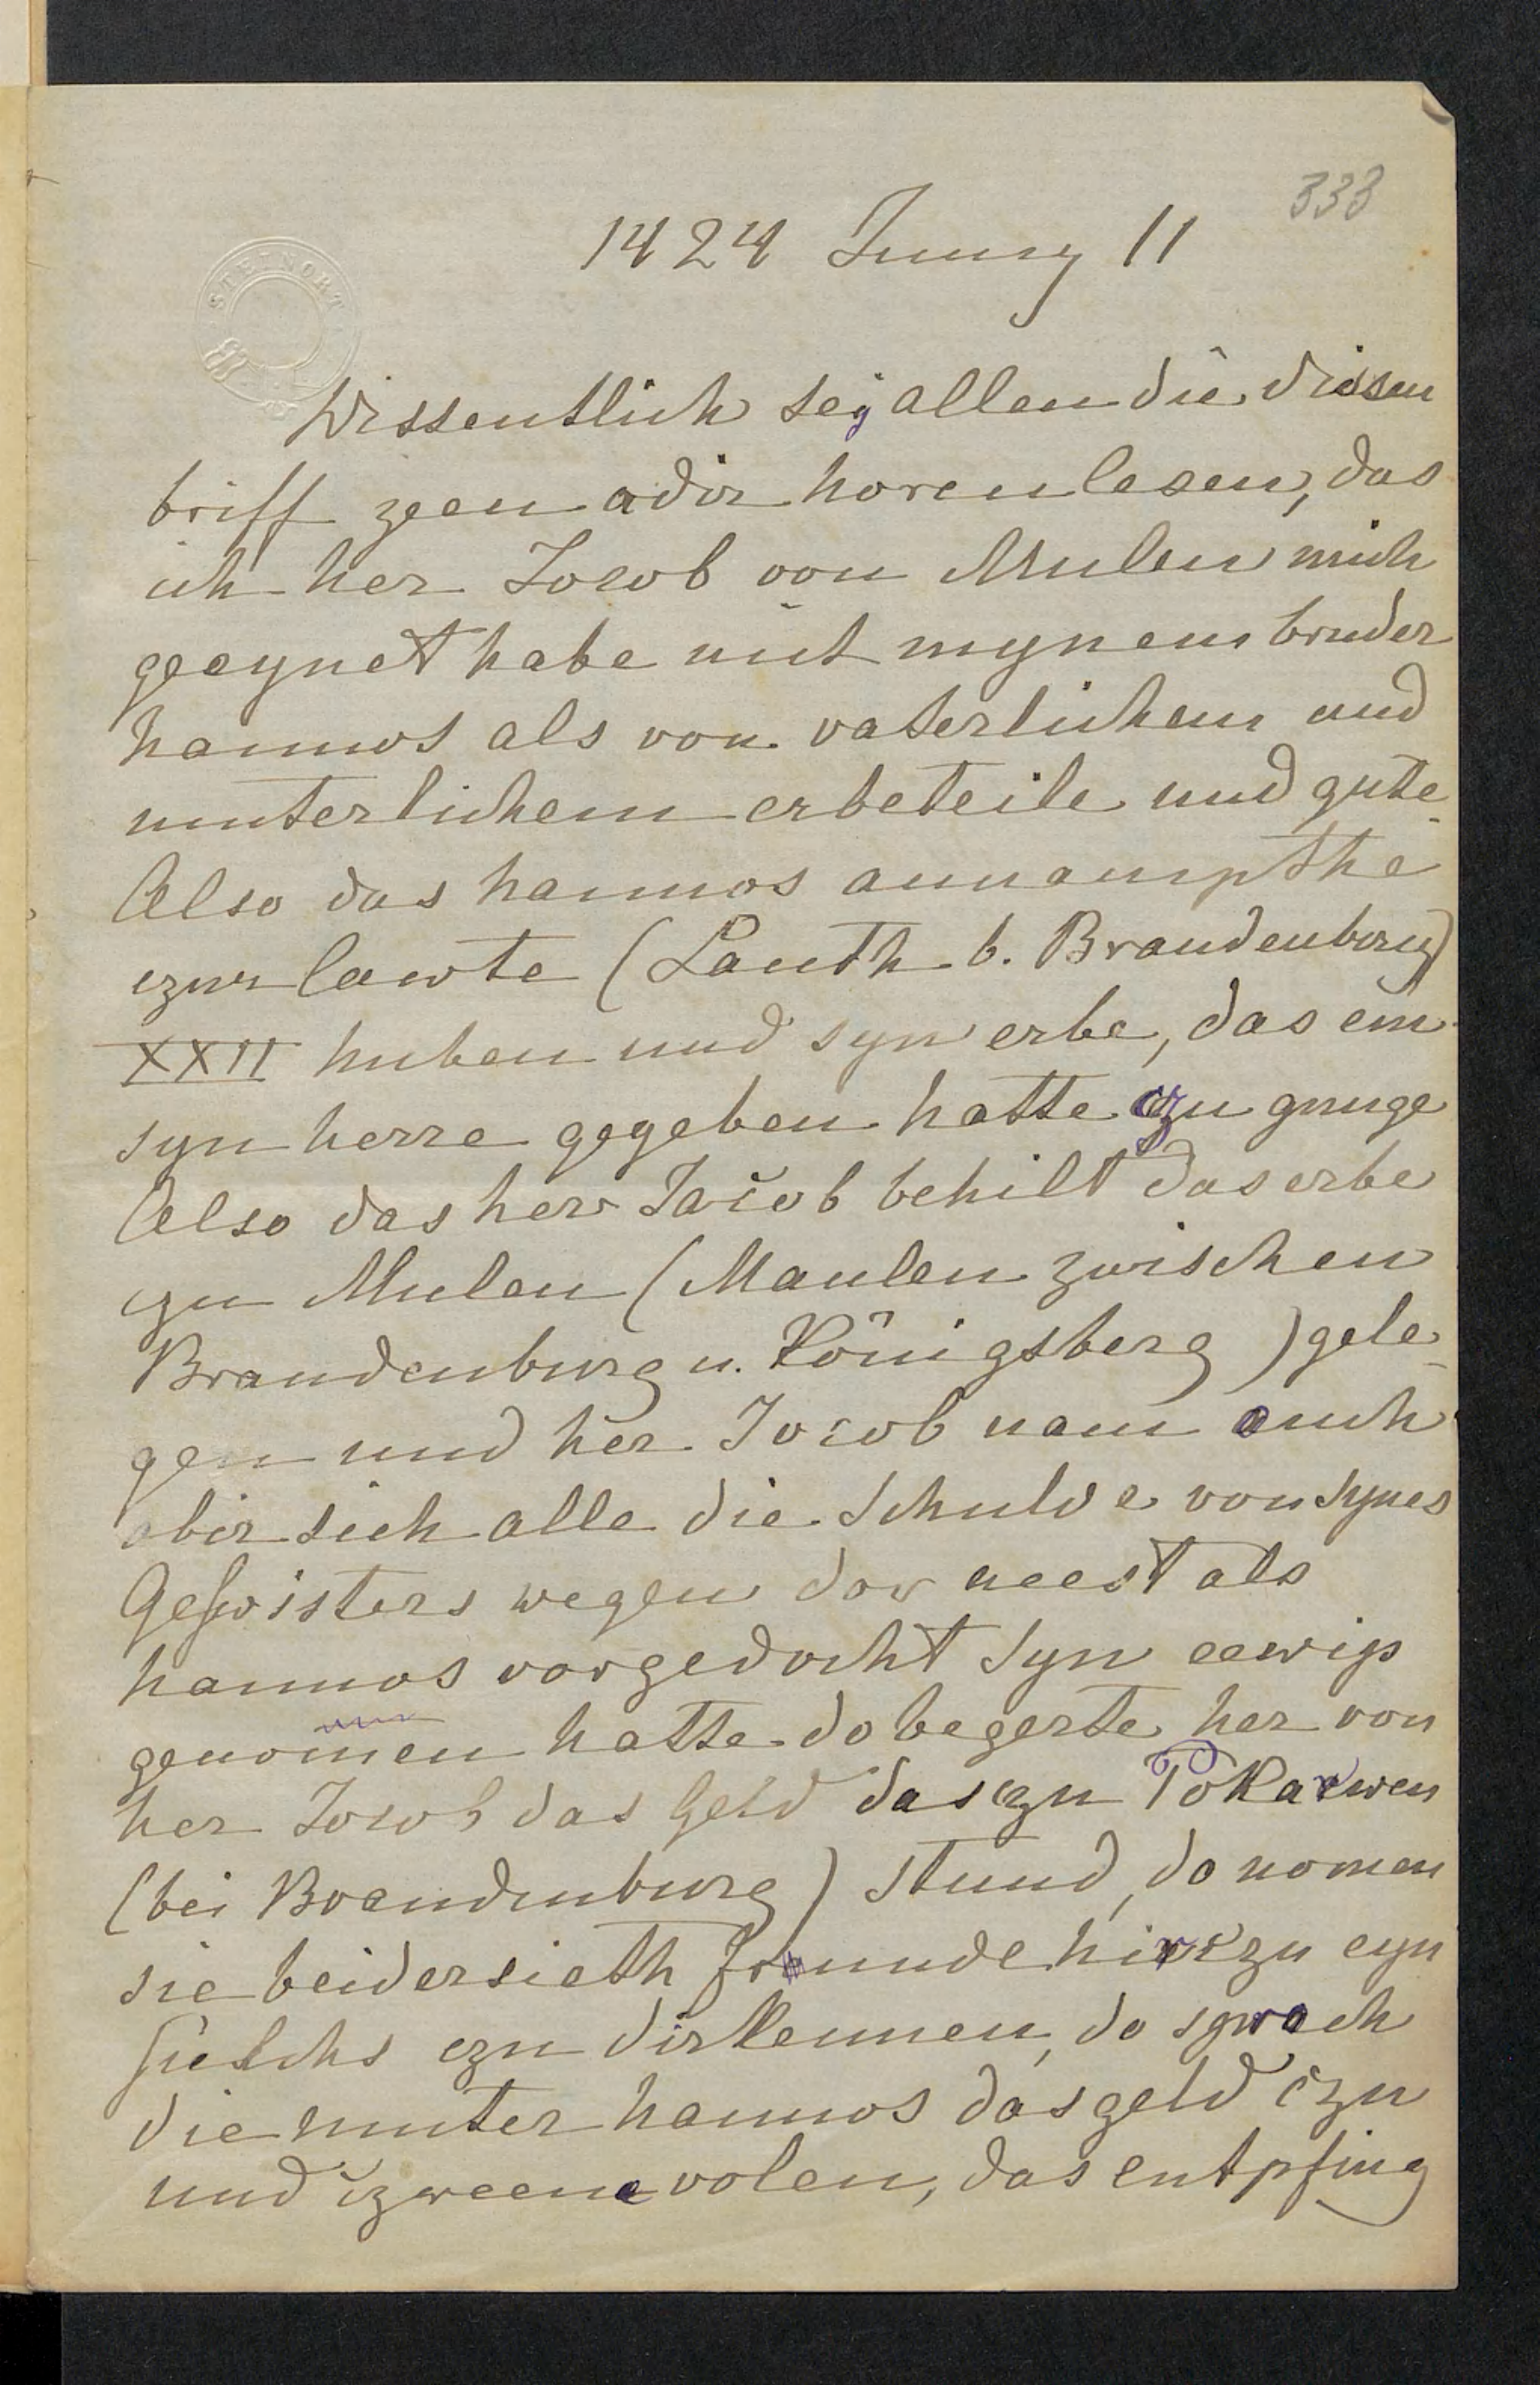 333
1424 Juny 11
STEINORT
Wissentlich sey allen die diesen
briff zeen adir horen lesen, das
ich her Jocob von Mulen mich
geeynet habe mit mynem bruder
hannos als von vaterlichem und
muterlichem erbeteile und gute
Also das hannos annampthe
czur lawte (Lauth b. Brandenburg)
XXII huben und syn erbe, das em
syn herre gegeben hatte czu gnuge
Also das her Jacob behilt das erbe
czu Mulen (Maulen zwischen
Brandenburg u. Königsberg) gele-
gen und her Jocob nam ouch
obir sich alle die schulde von synes
Geswisters wegen dor neest als
hannos vorgedocht syn eewip
genomen hatte do begerte her von
her Jocob das Geld das czu Pokarwen
(bei Brandenburg) stund, do nomen
sie beidersieth frunde hir czu eyn
sielchs czu dirkennen, do sprach
die muter hannos das geld czu
und czweene volen, das entpfing